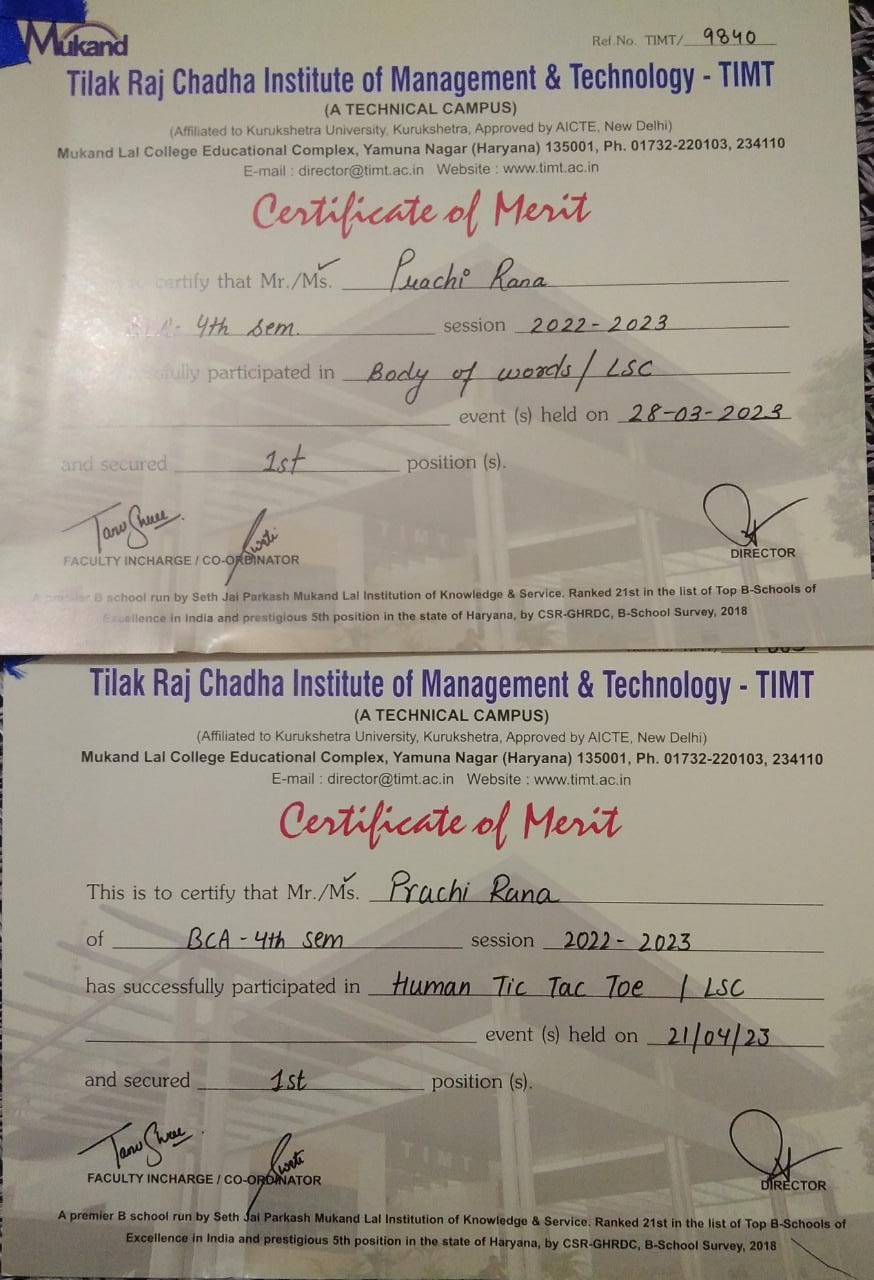 Mukand
Ref.No. TIMT/ 9840
Tilak Raj Chadha Institute of Management & Technology - TIMT
(A TECHNICAL CAMPUS)
(Affiliated to Kurukshetra University, Kurukshetra, Approved by AICTE, New Delhi)
Mukand Lal College Educational Complex, Yamuna Nagar (Haryana) 135001, Ph. 01732-220103, 234110
E-mail : director@timt.ac.in Website : www.timt.ac.in
Certificate of Merit
certify that Mr./Ms. Prachi Rana
4th sem. session 2022-2023
participated in Body of words / LSC
event (s) held on 28-03-2023
and secured 1st position (s).
Taru Shree Sweti
FACULTY INCHARGE / CO-ORDINATOR DIRECTOR
A premier B school run by Seth Jai Parkash Mukand Lal Institution of Knowledge & Service. Ranked 21st in the list of Top B-Schools of
Excellence in India and prestigious 5th position in the state of Haryana, by CSR-GHRDC, B-School Survey, 2018
Tilak Raj Chadha Institute of Management & Technology - TIMT
(A TECHNICAL CAMPUS)
(Affiliated to Kurukshetra University, Kurukshetra, Approved by AICTE, New Delhi)
Mukand Lal College Educational Complex, Yamuna Nagar (Haryana) 135001, Ph. 01732-220103, 234110
E-mail : director@timt.ac.in Website : www.timt.ac.in
Certificate of Merit
This is to certify that Mr./Ms. Prachi Rana
of BCA - 4th sem session 2022 - 2023
has successfully participated in Human Tic Tac Toe / LSC
event (s) held on 21/04/23
and secured 1st position (s).
Taru Shree Sweti
FACULTY INCHARGE / CO-ORDINATOR DIRECTOR
A premier B school run by Seth Jai Parkash Mukand Lal Institution of Knowledge & Service. Ranked 21st in the list of Top B-Schools of
Excellence in India and prestigious 5th position in the state of Haryana, by CSR-GHRDC, B-School Survey, 2018